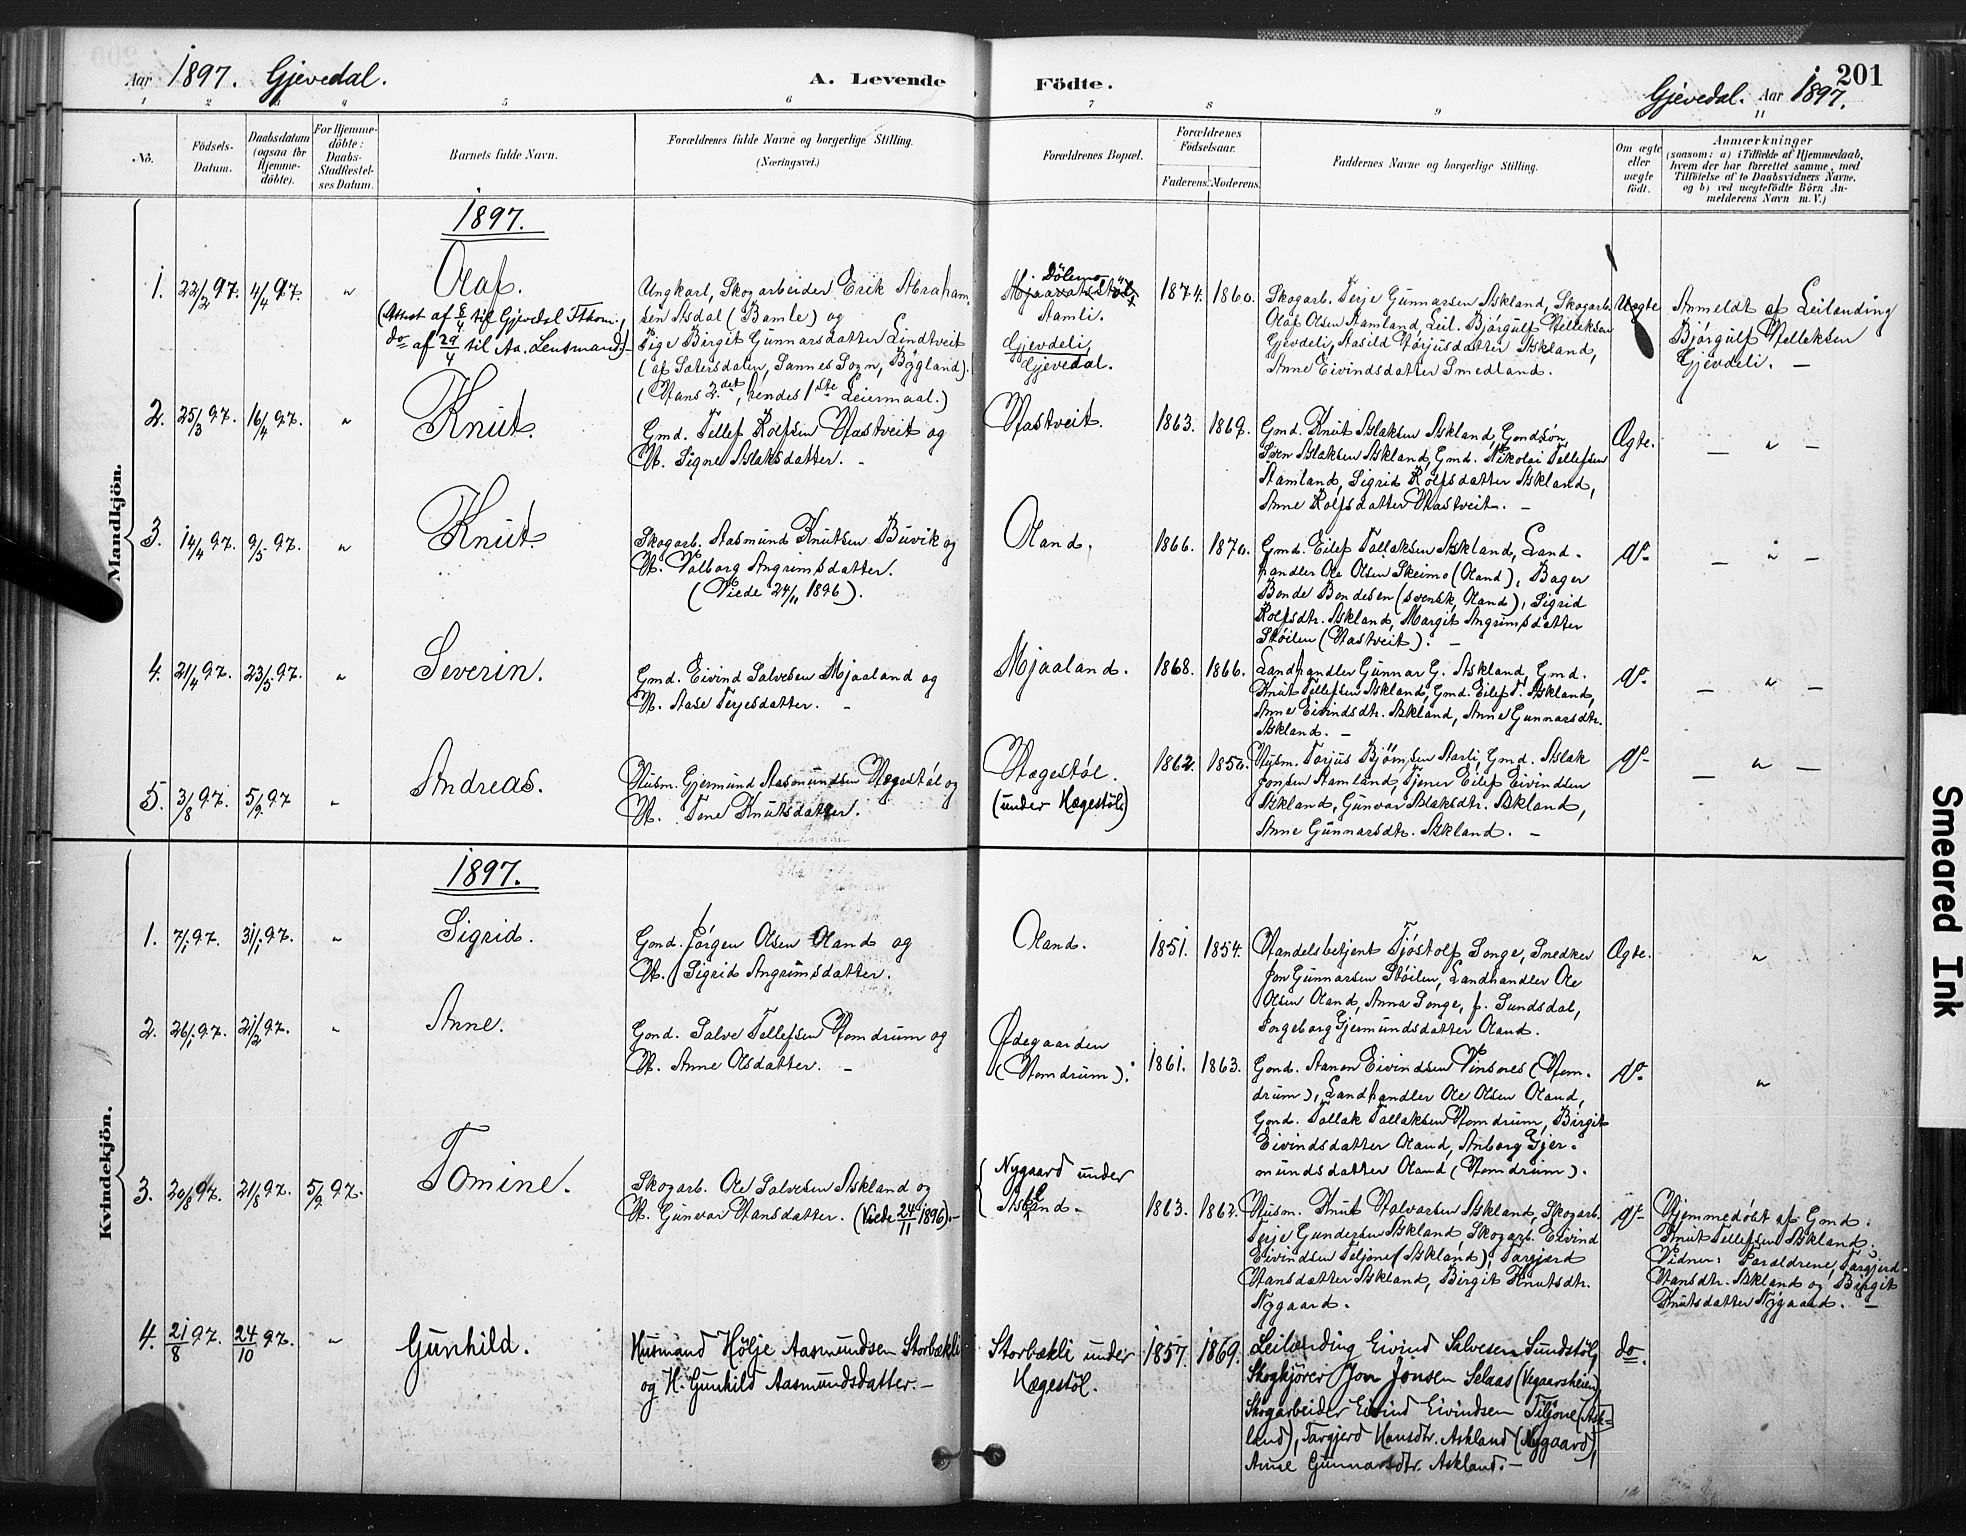 Aar 1897. Gjevedal. A. Levende Födte. Gjevedal. Aar 1897. 201
1 2 3 4 5 6 7 8 9 11
No.
Födsels-
Datum.
Daabsdatum
(ogsaa for
Hjemme-
döbte).
For Hjemme-
döbte:
Daabs-
Stadfæstel-
ses Datum.
Barnets fulde Navn.
Forældrenes fulde Navne og borgerlige Stilling.
(Næringsvei.)
Forældrenes Bopæl.
Forældrenes
Födselsaar.
Faderens. Moderens.
Faddernes Navne og borgerlige Stilling.
Om ægte
eller
uægte
födt.
Anmærkninger
(saasom: a) i Tilfælde af Hjemmedaab,
hvem der har forrettet samme, med
Tilföielse af to Daabsvidners Navne.
og b) ved uægtefödte Börn An-
melderens Navn m. V.)
Mandkjön.
1897.
1. 22/2 97. 4/4 97. "
Olaf.
(Attest af 6/4 til Gjevedal Fthom.,
do af 29/4 til Aa. Lensmand)-
Ungkarl, Skogarbeider Erik Abraham-
sen Asdal (Bamle) og
Pige Birgit Gunnarsdatter Lindtveit
(af Sætersdalen, Sannes Sogn, Bygland).
(Hans 2det, hendes 1ste Leiermaal.)
Dölemo
Mjaavatstöl
Aamli.
Gjevdeli,
Gjevedal.
1874. 1860.
Skogarb. Terje Gunnarsen Askland, Skogarb.
Olaf Olsen Aamland, Leil. Bjørgulf Helleksen
Gjevdeli, Aasild Torjusdatter Askland,
Anne Eivindsdatter Smedland.
Uægte
Anmeldt af Leilending
Bjørgulf Helleksen
Gjevdeli. -
2. 25/3 97. 16/4 97. "
Knut.
Gmd. Tellef Rolfsen Hastveit og
H. Signe Aslaksdatter. -
Hastveit.
1863. 1869.
Gmd. Knut Aslaksen Askland, Gmdsøn
Sven Aslaksen Askland, Gmd. Nikolai Tellefsen
Aamland, Sigrid Rolfsdatter Askland,
Anne Rolfsdatter Hastveit. -
Ægte.
- " -
3. 14/4 97. 9/5 97. "
Knut.
Skogarb. Aasmund Knutsen Buvik og
H. Valborg Angrimsdatter.
(Viede 24/11 1896).
Oland.
1866. 1870.
Gmd. Eilef Tallaksen Askland, Land-
handler Ole Olsen Skeimo (Oland), Bager
Bende Bendesen (svensk, Oland), Sigrid
Rolfsdtr. Askland, Margit Angrimsdatter
Støilen (Hastveit). -
do-
- " -
4. 21/4 97. 23/5 97. "
Severin.
Gmd. Eivind Salvesen Mjaaland og
H. Aase Terjesdatter. -
Mjaaland.
1868. 1866.
Landhandler Gunnar G. Askland, Gmd.
Knut Tellefsen Askland, Gmd. Eilef T. Askland,
Anne Eivindsdtr. Askland, Anne Gunnarsdtr.
Askland. -
do-
- " -
5. 3/8 97. 5/9 97 "
Andreas.
Husm. Gjermund Aasmundsen Hægestøl og
H. Tone Knutsdatter.
Hægestøl.
(under Hægestøl)
1862. 1850.
Husm. Torjus Bjørnsen Aarli, Gmd. Aslak
Jonsen Aamland, Tjener Eilef Eivindsen
Askland, Gunvor Aslaksdtr. Askland,
Anne Gunnarsdtr. Askland. -
do-
- " -
Kvindekjön.
1897.
1. 7/1 97. 31/1 97. "
Sigrid.
Gmd. Jørgen Olsen Oland og
H. Sigrid Angrimsdatter.
Oland.
1851. 1854.
Handelsbetjent Tjøstolf Songe, Snedker
Jon Gunnarsen Støilen, Landhandler Ole
Olsen Oland, Anna Songe, f. Sundsdal,
Torgeborg Gjermundsdatter Oland.
Ægte.
"
2. 26/1 97. 21/2 97. "
Anne.
Gmd. Salve Tellefsen Homdrum og
H. Anne Olsdatter. -
Ødegaarden
(Homdrum).
1861. 1863.
Gmd. Aanon Eivindsen Vinsnes (Hom-
drum), Landhandler Ole Olsen Oland,
Gmd. Tallak Tallaksen Homdrum, Birgit
Eivindsdatter Oland, Anborg Gjer-
mundsdatter Oland (Homdrum).
do-
"
3. 20/8 97. 21/8 97. 5/9 97.
Tomine.
Skogarb. Ole Salvesen Askland og
H. Gunvor Hansdatter. (Viede 24/11 1896).-
Nygaard under
Askland.-
1863. 1862.
Husm. Knut Halvorsen Askland, Skogarb.
Terje Gundersen Askland, Skogarb. Eivind
Eivindsen Tiljone (Askland), Targjerd
Hansdatter Askland, Birgit Knutsdtr.
Nygaard.
do-
Hjemmedøbt af Gmd.
Knut Tellefsen Askland.
Vidner: Forældrene, Targjerd
Hansdtr. Askland og Birgit
Knutsdatter Nygaard. -
4. 21/8 97. 24/10 97. "
Gunhild.
Husmand Hölje Aasmundsen Storbækli
og H. Gunhild Aasmundsdatter.-
Storbækli under
Hægestøl.
1857. 1869.
Leilending Eivind Salvesen Sundstøl,
Skogkjører Jon Jonsen Selaas (Vegaarsheien)
Skogarbeider Eivind Eivindsen Tiljone (Ask-
land), Targjerd Hansdtr. Askland (Nygaard),
Anne Gunnarsdtr. Askland.-
do.
Smeared Ink